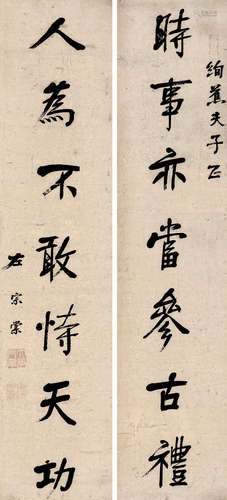 絢蕉夫子正
時事亦當參古禮
人為不敢恃天功
左宗棠